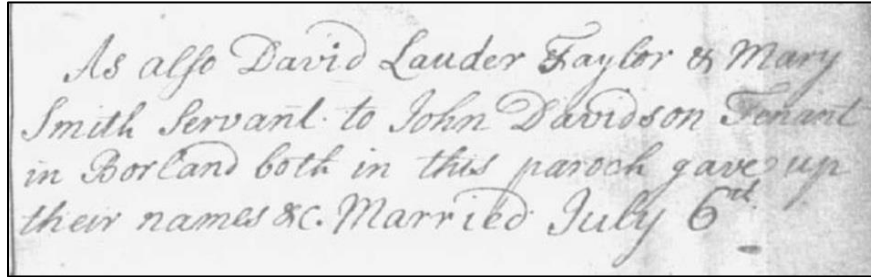 As also David Lauder Taylor & Mary
Smith Servant to John Davidson Tenant
in Borland both in this paroch gave up
their names &c. Married July 6th